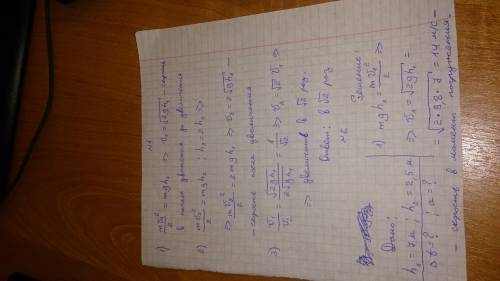 N1
1) mv₁²/2 = mgh₁ => v₁ = √2gh₁ - скорость
в начале движения до увеличения
2) mv₂²/2 = mgh₂ ; h₂ = 2h₁ =>
=> mv₂²/2 = 2mgh₁ => v₂ = 2√gh₁ -
- скорость после увеличения
3) v₁/v₂ = √2gh₁/2√gh₁ = 1/√2 => v₂ = √2 v₁ =>
=> увеличить в √2 раз.
Ответ: в √2 раз
N2
Дано:
h₁ = 7 м, h₂ = 2,5 м
Δt = ? , a = ?
Решение:
1) mgh₁ = mv₁²/2 =>
=> v₁ = √2gh₁ =
= √2·9,8·7 = 14 м/с -
- скорость в момент погружения.